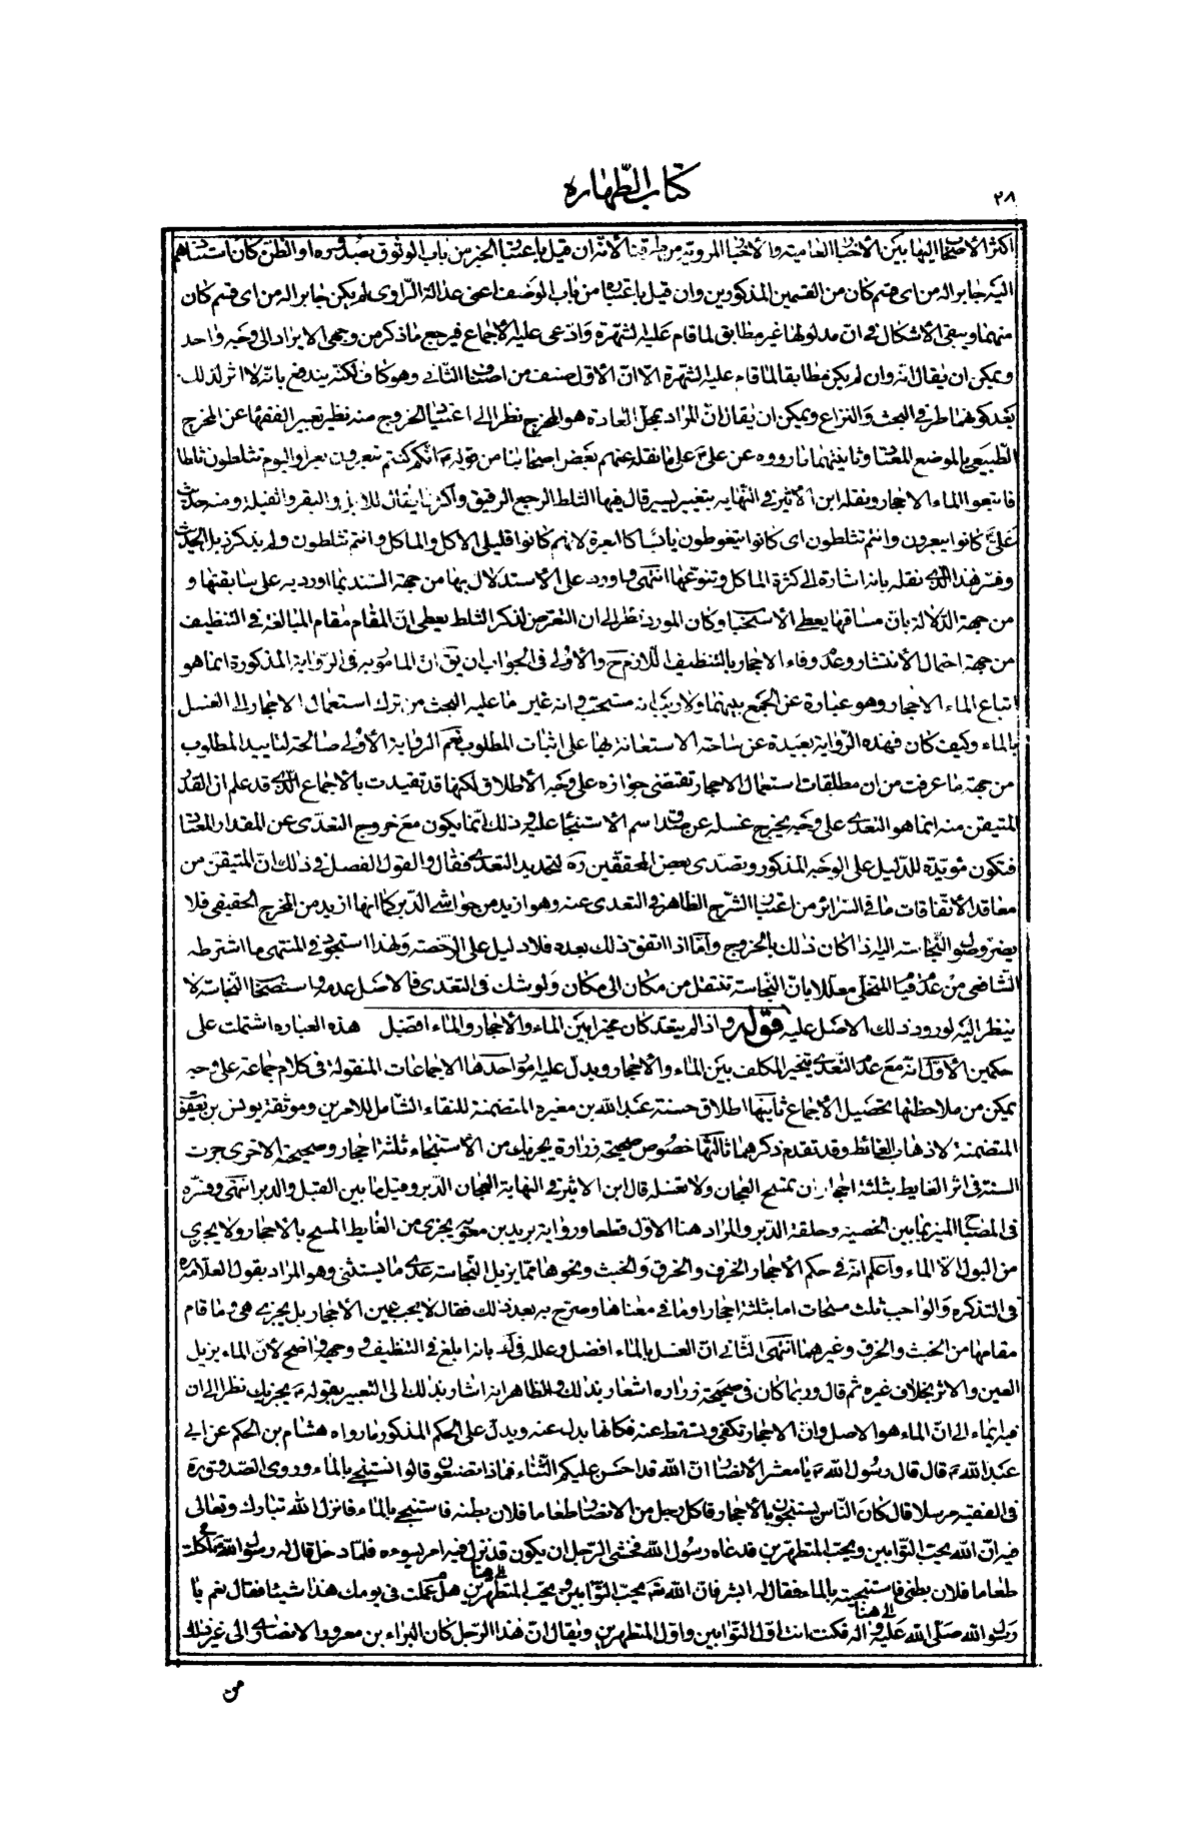 كتاب الطهارة
٢٨
اليه جابرا له من اى قسم كان من القسمين المذكورين وان قيل باعتباره من باب الوصف اعنى عدالة الراوى لم يكن جابرا له من اى قسم كان
منهما ويبقى الأشكال فى ان مدلولها غير مطابق لما قام عليه الشهرة وادعى عليه الأجماع فيرجع ما ذكر من وجهى الايراد الى وجه واحد
ويمكن ان يقال انه وان لم يكن مطابقا لما قام عليه الشهرة الا ان الاول صنف من اصناف الثانى وهو كاف لكنه يندفع بانه لا اثر لذلك
بعد كونهما طرفى البحث والنزاع ويمكن ان يقال ان المراد بمحل العادة هو المخرج نظرا الى اعتبار الخروج منه نظير تعبير الفقهاء عن المخرج
الطبيعى بالموضع المعتاد وثانيتهما ما رووه عن على ع على ما نقله عنهم بعض اصحابنا من قوله ع انكم كنتم تبعرون بعرا واليوم تثلطون ثلطا
فاتبعوا الماء الاحجار ونقله ابن الأثير فى النهايه بتغيير يسير قال فيها الثلط الرجيع الرقيق واكثر ما يقال للابل والبقر والفيلة ومنه حديث
على ع كانوا يبعرون وانتم تثلطون اى كانوا يتغوطون يابسا كالبعرة لانهم كانوا قليلى الاكل والماكل وانتم تثلطون ولم يذكر ذيل الحديث
وفسر هذا الذى نقله بانه اشارة الى كثرة الماكل وتنوعها انتهى واورد على الأستدلال بها من جهة السند بما اورد به على سابقتها و
من جهة الدلالة بان مساقها يعطى الأستحباب وكان المورد نظر الى ان التعرض لذكر الثلط يعطى ان المقام مقام المبالغة فى التنظيف
من جهة احتمال الأنتشار وعدم وفاء الاحجار بالتنظيف اللازم ح والأولى فى الجواب ان يق ان المامور به فى الرواية المذكورة انما هو
اتباع الماء الاحجار وهو عبارة عن الجمع بينهما ولا ريب فى انه مستحب وانه غير ما عليه البحث من ترك استعمال الاحجار الى الغسل
بالماء وكيف كان فهذه الرواية بعيدة عن ساحة الاستعانة بها على اثبات المطلوب نعم الرواية الأولى صالحة لتاييد المطلوب
من جهة ما عرفت من ان مطلقات استعمال الاحجار تقتضى جوازه على وجه الأطلاق لكنها قد تقيدت بالأجماع الذى قد علم ان القدر
المتيقن منه انما هو التعدى على وجه يخرج غسله عن صدق اسم الاستنجاء عليه وذلك انما يكون مع خروج التعدى عن المقدار المعتاد
فتكون مؤيدة للدليل على الوجه المذكور وتصدى بعض المحققين ره لتحديد التعدى فقال والقول الفصل فى ذلك ان المتيقن من
معاقد الأتفاقات ما فى السرائر من اعتبار الشرج الظاهر فى التعدى عنه وهو ازيد من حواشى الدبر كما انها ازيد من المخرج الحقيقى فلا
يضر وصول النجاسة اليه اذا كان ذلك بالخروج واما اذا اتفق ذلك بعده فلا دليل على الرخصة ولهذا استجود فى المنتهى ما اشترطه
الشافعى من عدم قيام المتخلى معللا بان النجاسة تنتقل من مكان الى مكان ولو شك فى التعدى فالاصل عدمه واستصحاب النجاسة لا
ينظر اليه لورود ذلك الاصل عليه قوله واذا لم يتعد كان مخيرا بين الماء والأحجار والماء افضل هذه العباره اشتملت على
حكمين الأول انه مع عدم التعدى يتخير المكلف بين الماء والأحجار ويدل عليه امور احدها الاجماعات المنقولة فى كلام جماعة على وجه
يمكن من ملاحظتها تحصيل الأجماع ثانيها اطلاق حسنة عبد الله بن مغيره المتضمنة للنقاء الشامل للامرين وموثقة يونس بن يعقوب
المتضمنة لاذهاب الغائط وقد تقدم ذكرهما ثالثها خصوص صحيحة زرارة يجزيك من الأستنجاء ثلثة احجار وصحيحته الاخرى جرت
السنة فى اثر الغايط بثلثة احجار ان تمسح العجان ولا تغسله قال ابن الاثير فى النهاية العجان الدبر وقيل ما بين القبل والدبر انتهى وفسره
فى المصباح المنير بما بين الخصية وحلقة الدبر والمراد هنا الاول قطعا ورواية بريد بن معوية يجزى من الغايط المسح بالاحجار ولا يجزى
من البول الا الماء واعلم انه فى حكم الأحجار الخزف والخرق والخشب ونحوها مما يزيل النجاسة عدى ما يستثنى وهو المراد بقول العلامة
فى التذكره والواجب ثلث مسحات اما بثلثة احجار او ما فى معناها وصرح به بعد ذلك فقال لا يجب عين الأحجار بل يجزى هى وما قام
مقامها من الخشب والخرق وغيرهما انتهى الثانى ان الغسل بالماء افضل وعلله فى ك بانه ابلغ فى التنظيف ووجهه واضح لأن الماء يزيل
العين والاثر بخلاف غيره ثم قال وربما كان فى صحيحة زراره اشعار بذلك والظاهر انه اشار بذلك الى التعبير بقوله ع يجزيك نظرا الى ان
فيه ايماء الى ان الماء هو الاصل وان الاحجار تكفى وتسقط عنه فكانها بدل عنه ويدل على الحكم المذكور ما رواه هشام بن الحكم عن ابى
عبد الله ع قال قال رسول الله ص يا معشر الانصار ان الله قد احسن عليكم الثناء فماذا تصنعون قالوا نستنجى بالماء وروى الصدوق ره
فى الفقيه مرسلا قال كان الناس يستنجون بالأحجار فاكل رجل من الانصار طعاما فلان بطنه فاستنجى بالماء فانزل الله تبارك وتعالى
فيه ان الله يحب التوابين ويحب المتطهرين فدعاه رسول الله فخشى الرجل ان يكون قد نزل فيه امر يسوءه فلما دخل قال له رسول الله
طعاما فلان بطنى فاستنجيت بالماء فقال له ابشر فان الله يحب التوابين ويحب المتطهرين هل عملت فى يومك هذا شيئا فقال نعم يا
رسول الله صلى الله عليه واله فكنت انت اول التوابين واول المتطهرين ويقال ان هذا الرجل كان البراء بن معرور الانصارى الى غير ذلك
من